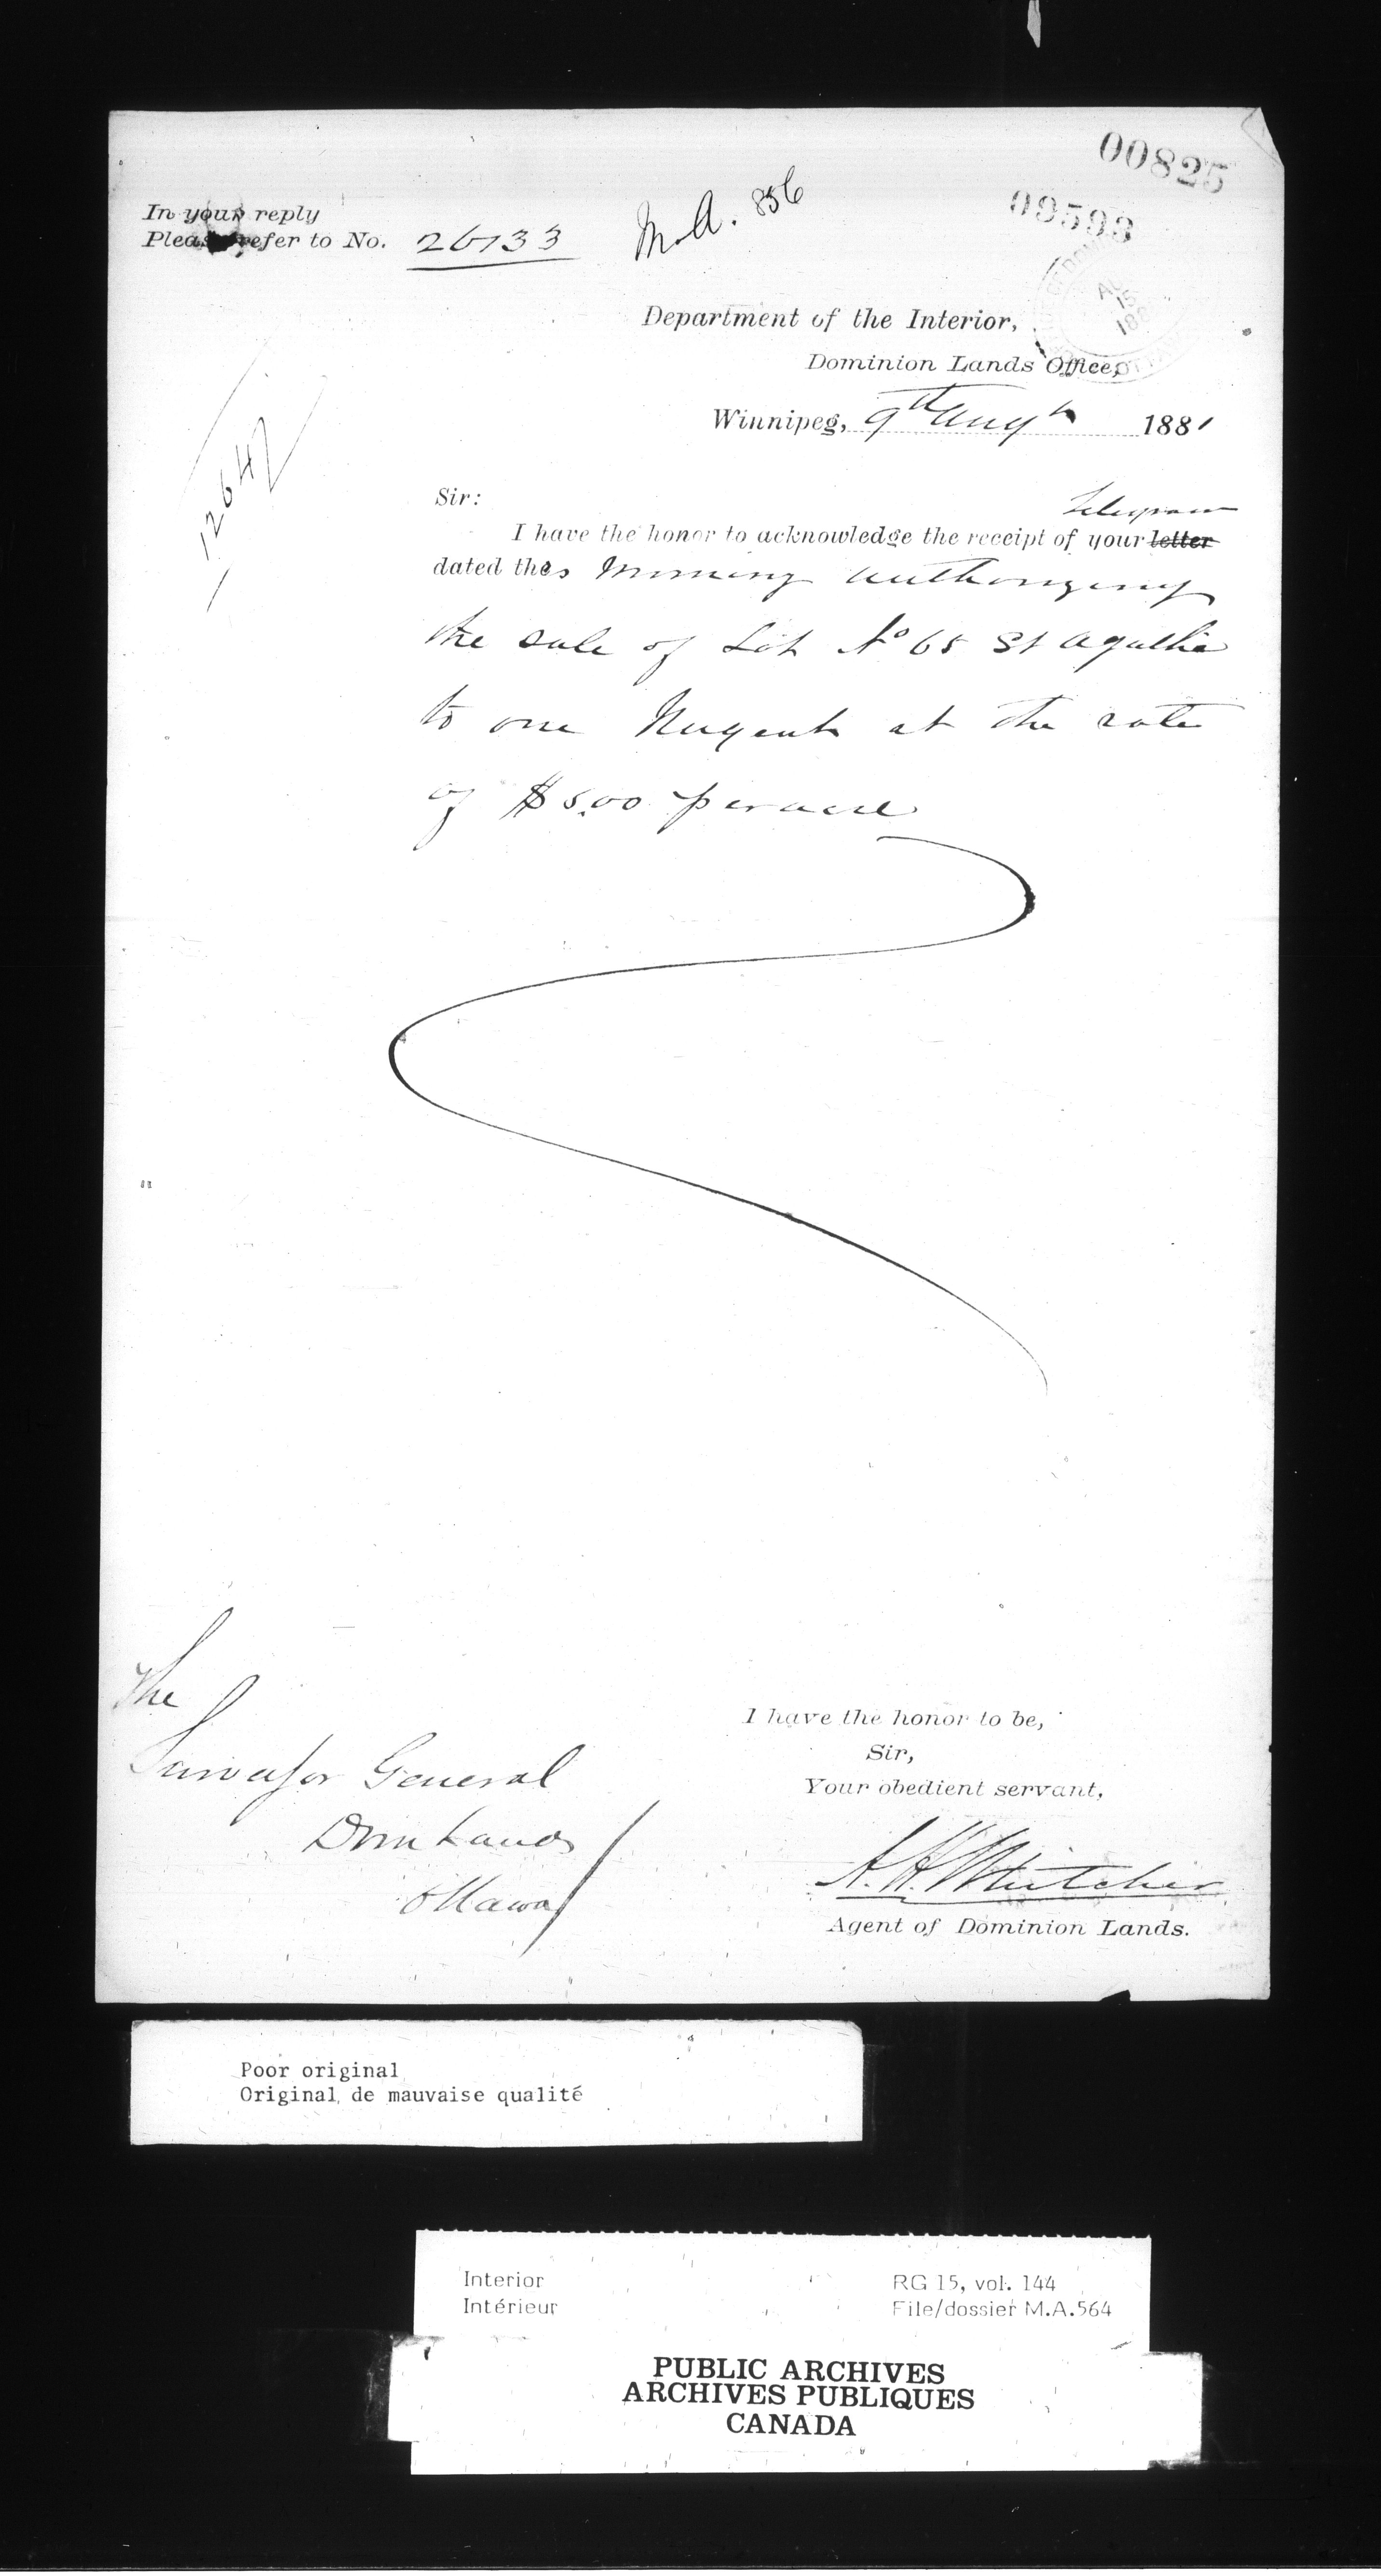 00825
09593
In your reply
Please refer to No. 26733
M.A. 856
AU
15
188
OTTAWA
Department of the Interior,
Dominion Lands Office,
Winnipeg, 9th Augt 1881
12642
Sir:
Telegram
I have the honor to acknowledge the receipt of your letter
dated this morning authorizing
the sale of Lot No 65 St Agathe
to one Nugent at the rate
of $5.00 per acre
The
Surveyor General
Dom Lands
Ottawa
I have the honor to be,
Sir,
Your obedient servant,
A. H. Whitcher
Agent of Dominion Lands.
Poor original
Original de mauvaise qualité
Interior
Intérieur
RG 15, vol. 144
File/dossier M.A.564
PUBLIC ARCHIVES
ARCHIVES PUBLIQUES
CANADA